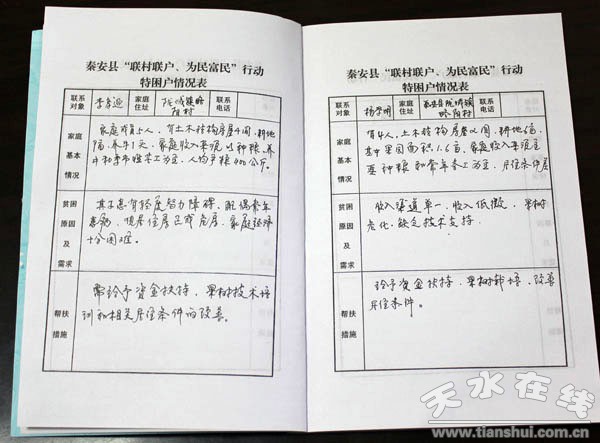 秦安县“联村联户、为民富民”行动
特困户情况表
联系对象
家庭住址 陇城镇略阳村
联系电话
家庭基本情况
家庭成员 人,有土木结构房屋4间,耕地
收入来源以种粮、养
为主,人均产粮400公斤。
贫困原因及需求
其子患有轻度智力障碍,配偶常年
患病,现居住房已成危房,家庭经济
十分困难。
帮扶措施
需给予资金扶持,果树技术培
训和相关居住条件的改善。
秦安县“联村联户、为民富民”行动
特困户情况表
联系对象 杨学明
家庭住址 秦安县陇城镇略阳村
联系电话
家庭基本情况
有4人,土木结构房屋 间,耕地6亩,
其中果园面积1.6亩,家庭收入来源主
要种粮和常年务工为主,居住条件差
贫困原因及需求
收入渠道单一,收入低微,果树
老化,缺乏技术支持
帮扶措施
给予资金扶持,果树 培,改善
居住条件。
天水在线
www.tianshui.com.cn